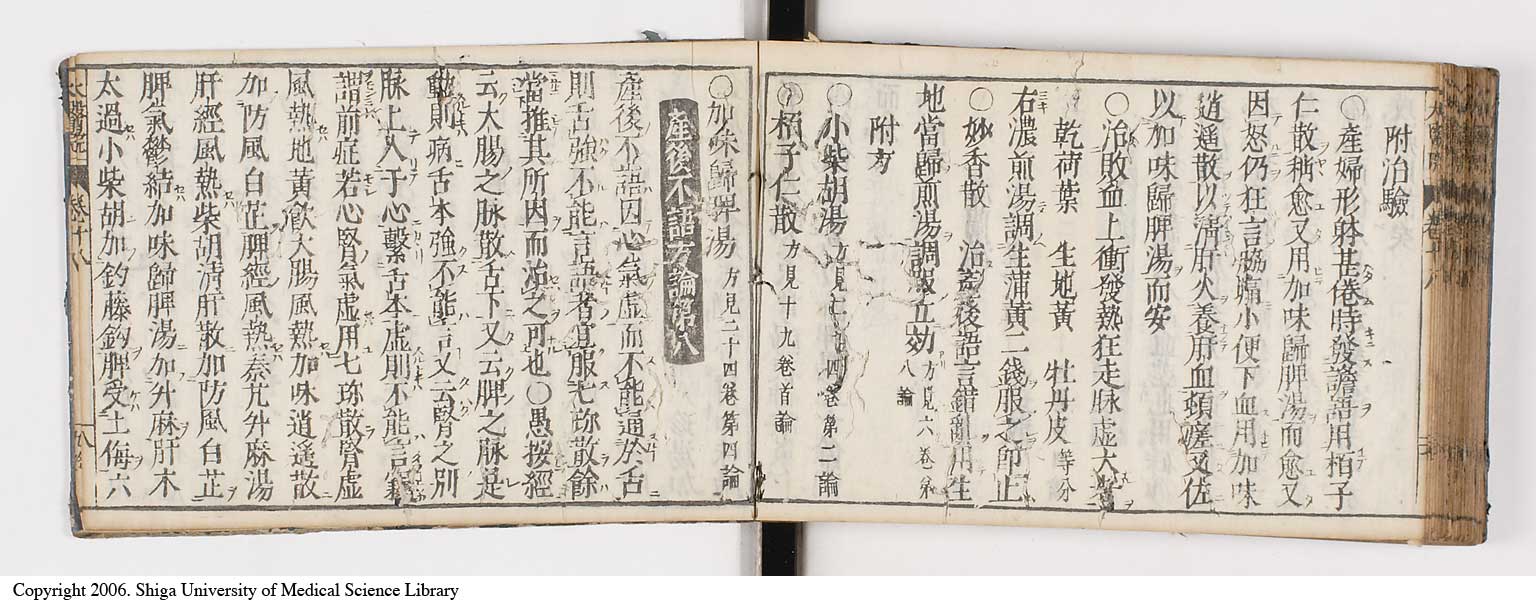 附治驗
〇產婦形躰甚倦時發譫語用栢子
仁散稍愈又用加味歸脾湯而愈又
因怒仍狂言脇痛小便下血用加味
逍遙散以淸肝火養肝血頓瘥又佐
以加味歸脾湯而安
〇治敗血上衝發熱狂走脉虛大者
乾荷葉 生地黃 牡丹皮等分
右濃煎湯調生蒲黃二錢服之卽止
〇妙香散 治產後語言錯亂用生
地當歸煎湯調服立効方見六卷第八論
附方
〇小柴胡湯方見二十四卷第二論
〇栢子仁散方見十九卷首論
〇加味歸脾湯方見二十四卷第四論
產後不語方論第八
產後不語因心氣虛而不能通於舌
則舌強不能言語者宜服七珎散餘
當推其所因而治之可也〇愚按經
云大腸之脉散舌下又云脾之脉是
動則病舌本強不能言又云腎之別
脉上入于心繫舌本虛則不能言
詣前症若心腎氣虛用七珎散腎虛
風熱地黃飮大腸風熱加味逍遙散
加防風白芷脾經風熱秦艽升麻湯
肝經風熱柴胡淸肝散加防風白芷
脾氣鬱結加味歸脾湯加升麻肝木
太過小柴胡加釣藤鈎脾受土侮六
卷十八
Copyright 2006. Shiga University of Medical Science Library